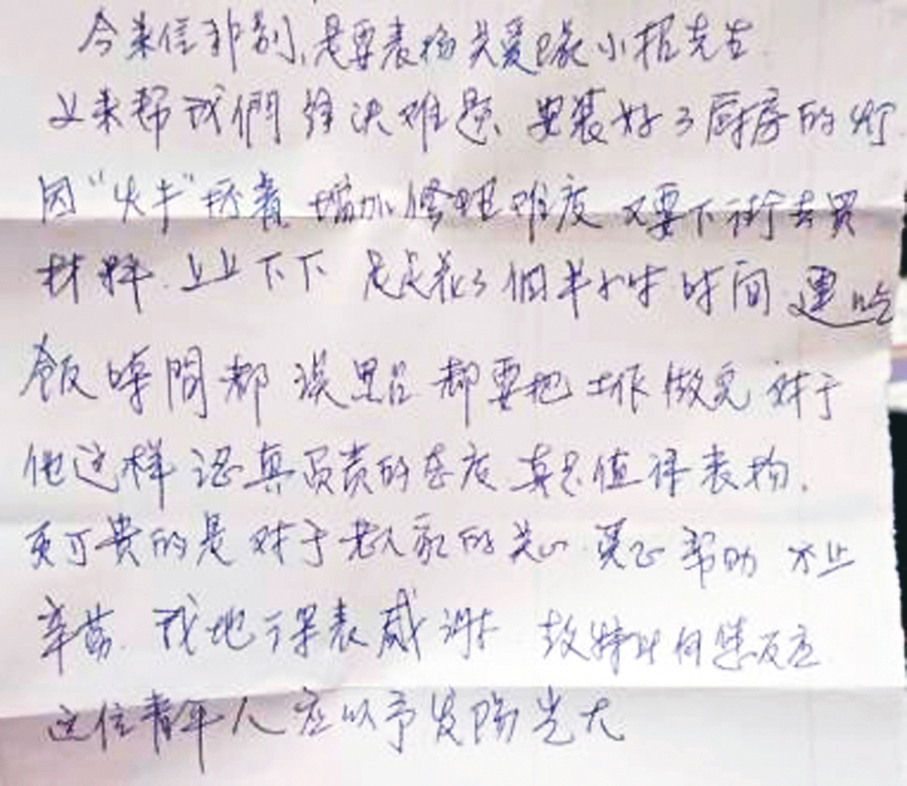 今来信非别，是要表扬关爱e家小招先生
上来帮我們解决难题、安装好了厨房的灯
因“火牛”拆着 增加修理难度 又要下街去买
材料.上上下下 足足花了個半小时 时间.連吃
飯時間都误点 都要把工作做完 对于
他这样认真负责的态度 真是值得表扬.
更可贵的是对于老人家的关心 真正帮助 不止
辛苦. 我地深表感谢 故特此向您反应
这位青年人应以予发陽光大